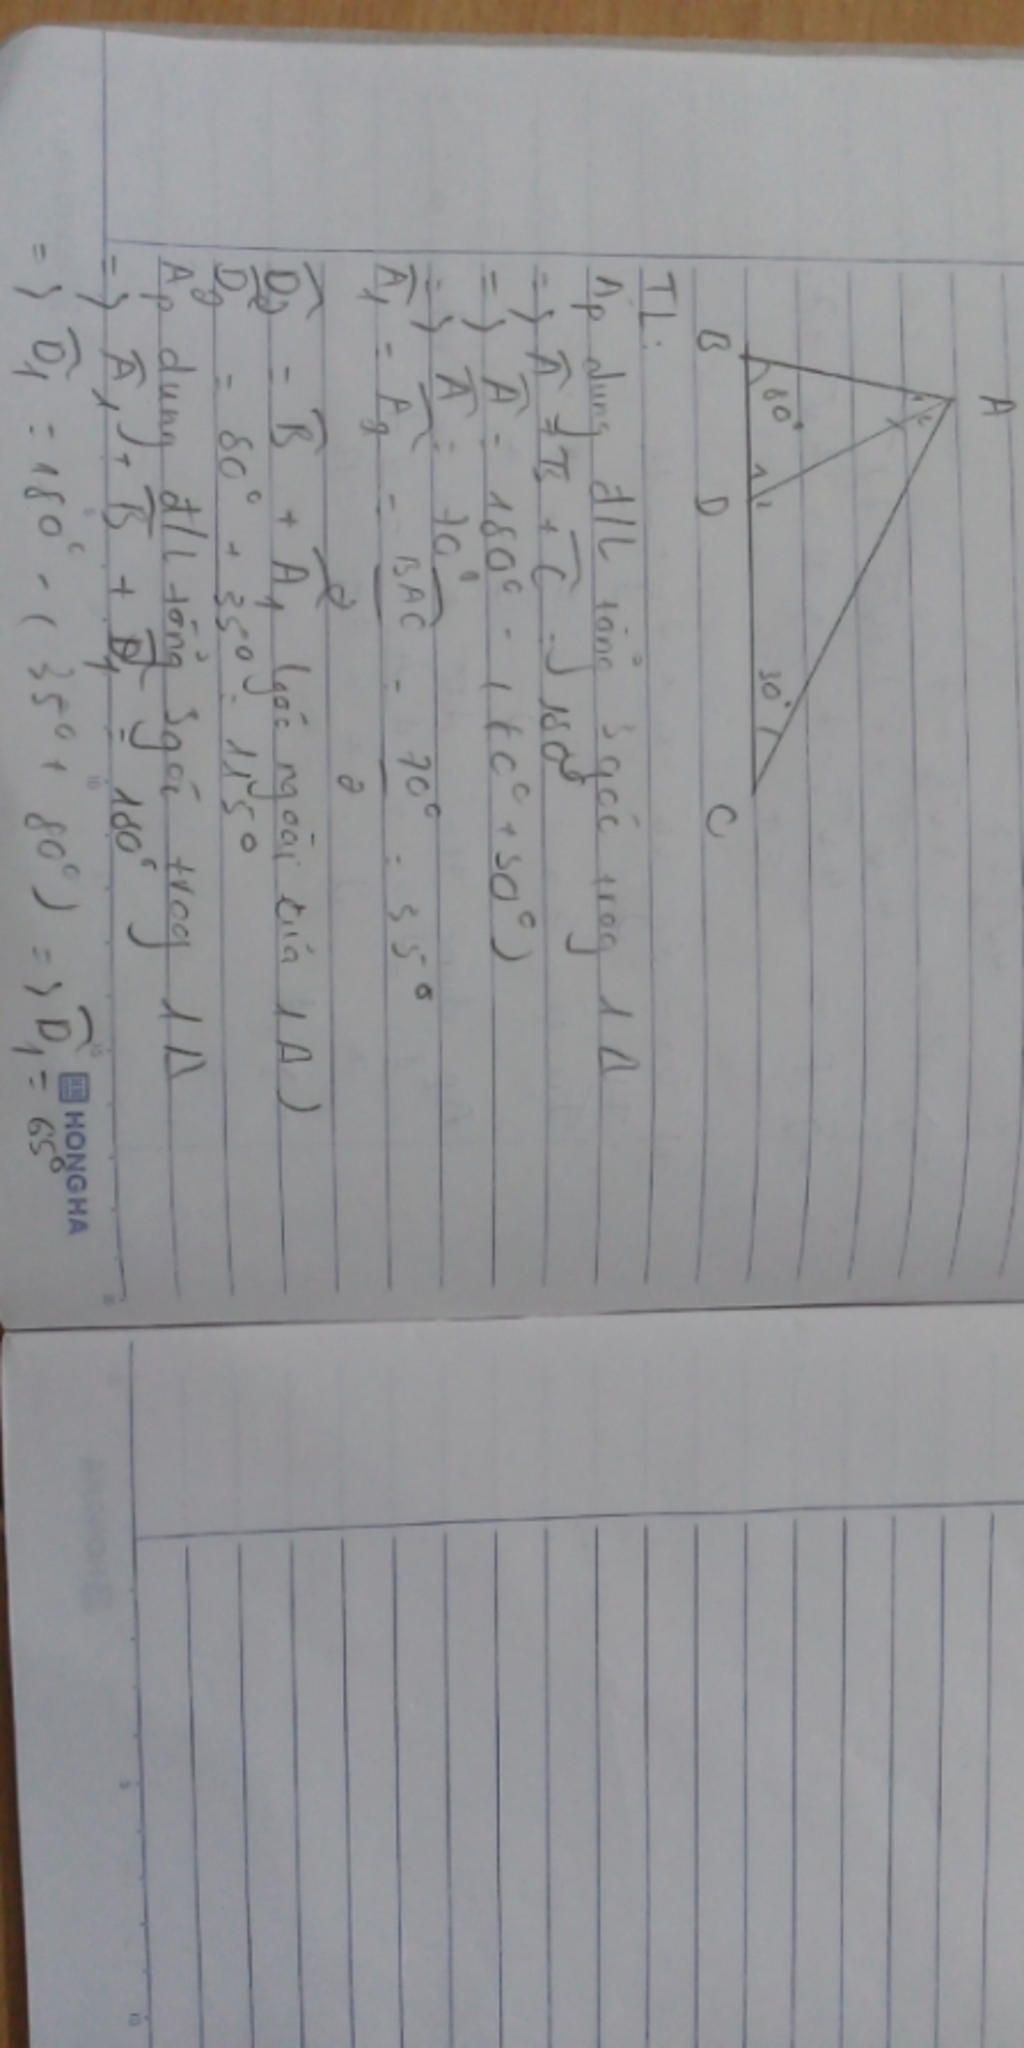 A
B 80° D 30° C
1 2
TL:
Áp dụng đ/L tổng 3 góc trog 1 Δ
=> Â + B̂ + Ĉ = 180°
=> Â = 180° - (80° + 30°)
=> Â = 70°
Â1 = Â2 = BAC/2 = 70°/2 = 35°
D̂2 = B̂ + Â1 (góc ngoài của 1Δ)
D̂2 = 80° + 35° = 115°
Áp dụng đ/L tổng 3 góc trog 1 Δ
=> Â1 + B̂ + D̂1 = 180°
=> D̂1 = 180° - (35° + 80°) => D̂1 = 65°
HONG HA